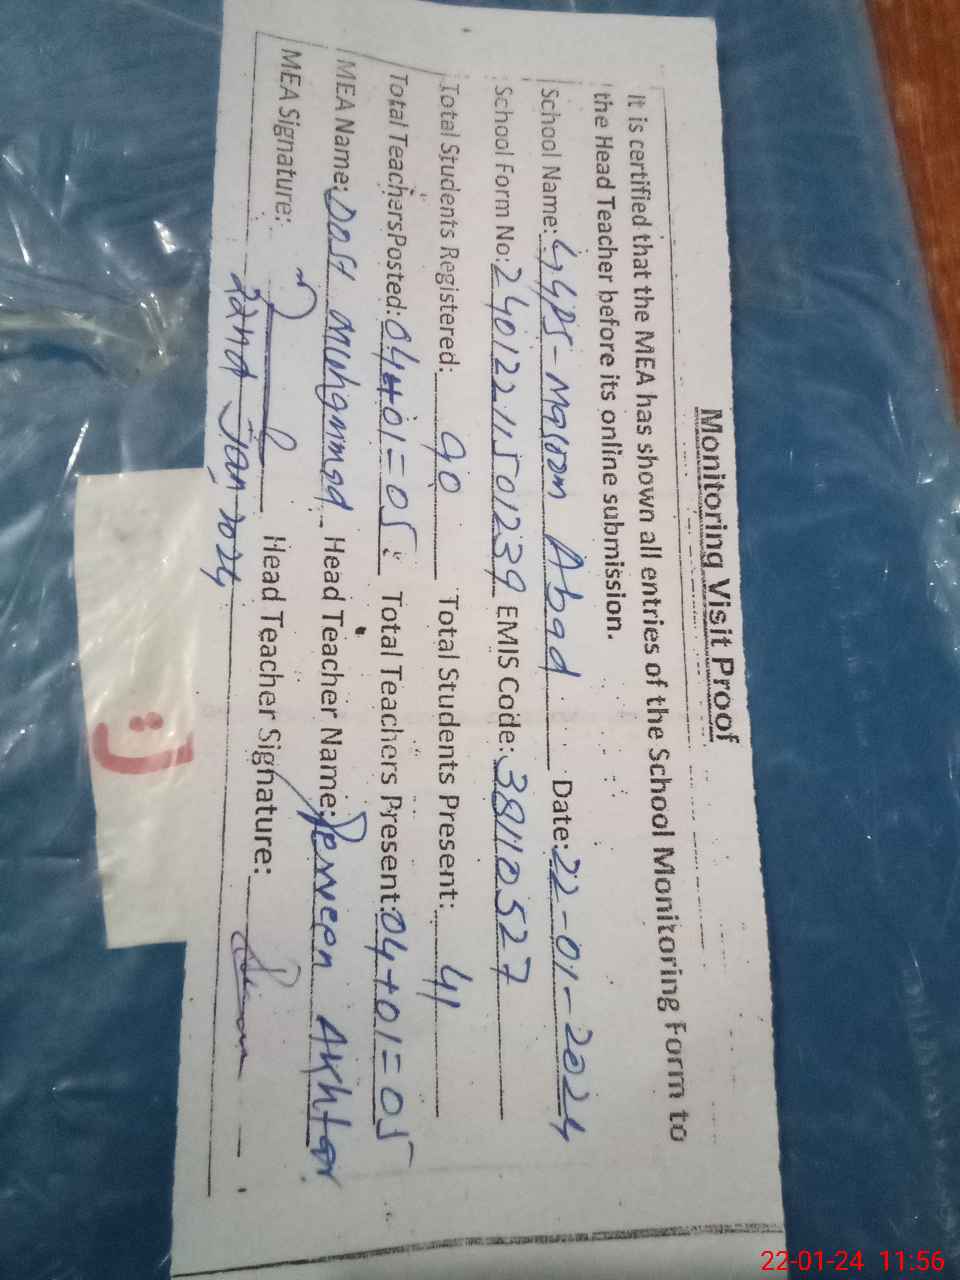 Monitoring Visit Proof
It is certified that the MEA has shown all entries of the School Monitoring Form to
the Head Teacher before its online submission.
School Name: GGPS - Masoom Abad Date: 22-01-2024
School Form No: 24012211501239 EMIS Code: 38110527
Total Students Registered: 90 Total Students Present: 41
Total Teachers Posted: 04+01=05 Total Teachers Present: 04+01=05
MEA Name: Dost Muhammad Head Teacher Name: Perveen Akhtar
MEA Signature: Head Teacher Signature:
22nd Jan, 2024
22-01-24 11:56